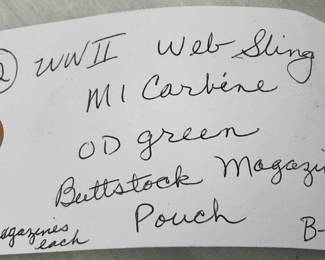 2 WWII Web Sling
M1 Carbine
OD green
Buttstock Magazin
Pouch
magazines
each
B-